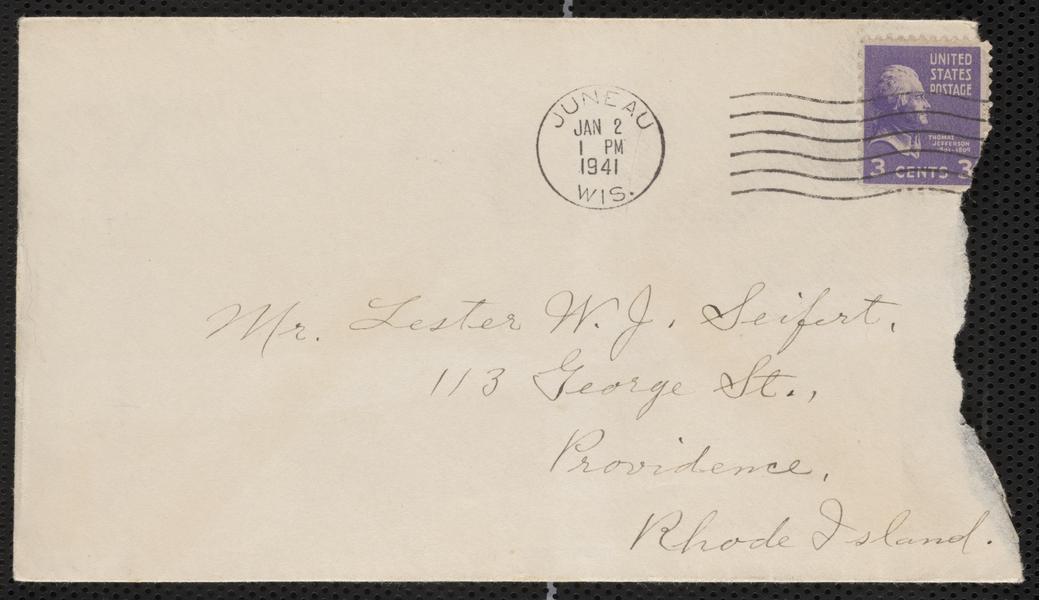 UNITED
STATES
POSTAGE
THOMAS
JEFFERSON
3 CENTS 3
JUNEAU
JAN 2
1 PM
1941
WIS.
Mr. Lester W. J. Seifert,
113 George St.,
Providence,
Rhode Island.